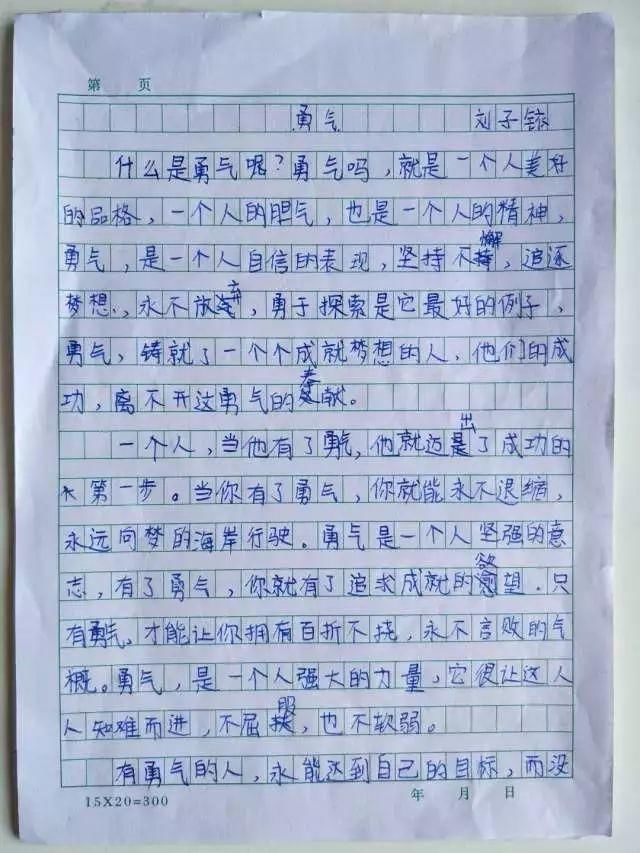 第 页
勇气 刘子铱
什么是勇气呢?勇气吗,就是一个人美好
的品格,一个人的胆气,也是一个人的精神,
勇气,是一个人自信的表现,坚持不懈,追逐
梦想,永不放弃,勇于探索是它最好的例子,
勇气,铸就了一个个成就梦想的人,他们的成
功,离不开这勇气的奉献。
一个人,当他有了勇气,他就迈出了成功的
第一步。当你有了勇气,你就能永不退缩,
永远向梦的海岸行驶。勇气是一个人坚强的意
志,有了勇气,你就有了追求成就的欲望.只
有勇气,才能让你拥有百折不挠,永不言败的气
概。勇气,是一个人强大的力量,它很让这人
人知难而进,不屈服,也不软弱。
有勇气的人,永能达到自己的目标,而没
15X20=300 年 月 日